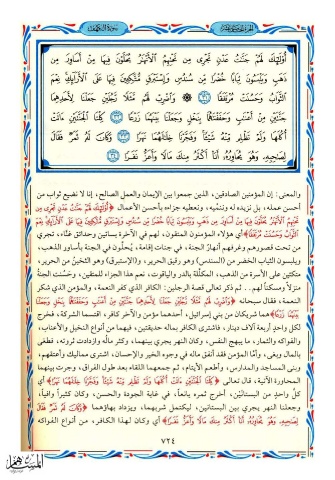 الجزء الخامس عشر
سورة الكهف
أُوْلَٰٓئِكَ لَهُمْ جَنَّٰتُ عَدْنٍ تَجْرِى مِن تَحْتِهِمُ ٱلْأَنْهَٰرُ يُحَلَّوْنَ فِيهَا مِنْ أَسَاوِرَ مِن
ذَهَبٍ وَيَلْبَسُونَ ثِيَابًا خُضْرًا مِّن سُندُسٍ وَإِسْتَبْرَقٍ مُّتَّكِـِٔينَ فِيهَا عَلَى ٱلْأَرَآئِكِ نِعْمَ
ٱلثَّوَابُ وَحَسُنَتْ مُرْتَفَقًا ٣١ وَٱضْرِبْ لَهُم مَّثَلًا رَّجُلَيْنِ جَعَلْنَا لِأَحَدِهِمَا
جَنَّتَيْنِ مِنْ أَعْنَٰبٍ وَحَفَفْنَٰهُمَا بِنَخْلٍ وَجَعَلْنَا بَيْنَهُمَا زَرْعًا ٣٢ كِلْتَا ٱلْجَنَّتَيْنِ ءَاتَتْ
أُكُلَهَا وَلَمْ تَظْلِم مِّنْهُ شَيْـًٔا وَفَجَّرْنَا خِلَٰلَهُمَا نَهَرًا ٣٣ وَكَانَ لَهُۥ ثَمَرٌ فَقَالَ
لِصَٰحِبِهِۦ وَهُوَ يُحَاوِرُهُۥٓ أَنَا۠ أَكْثَرُ مِنكَ مَالًا وَأَعَزُّ نَفَرًا ٣٤
والمعنى: إن المؤمنين الصادقين، الذين جمعوا بين الإيمان والعمل الصالح، إنا لا نضيع ثواب من
أحسن عمله، بل نزيده له وننميه، ونعطيه جزاءه بأحسن الأعمال ﴿أُوْلَٰٓئِكَ لَهُمْ جَنَّٰتُ عَدْنٍ تَجْرِى مِن
تَحْتِهِمُ ٱلْأَنْهَٰرُ يُحَلَّوْنَ فِيهَا مِنْ أَسَاوِرَ مِن ذَهَبٍ وَيَلْبَسُونَ ثِيَابًا خُضْرًا مِّن سُندُسٍ وَإِسْتَبْرَقٍ مُّتَّكِـِٔينَ فِيهَا عَلَى ٱلْأَرَآئِكِ نِعْمَ
ٱلثَّوَابُ وَحَسُنَتْ مُرْتَفَقًا﴾ أي هؤلاء المؤمنون المتقون، لهم في الآخرة بساتين وحدائق غنَّاء، تجري
من تحت قصورهم وغرفهم أنهارُ الجنة، في جنات إقامة، يُحلَّون في الجنة بأساور الذهب،
ويلبسون الثياب الخضر من (السندس) وهو رقيق الحرير، و(الإستبرق) وهو الثخينُ من الحرير،
متكئين على الأسرة من الذهب، المكلَّلة بالدر والياقوت، نعم هذا الجزاء للمتقين، وحسُنت الجنةُ
منزلاً ومسكناً لهم.. ثم ذكر تعالى قصة الرجلين: الكافر الذي كفر النعمة، والمؤمن الذي شكر
النعمة، فقال سبحانه ﴿وَٱضْرِبْ لَهُم مَّثَلًا رَّجُلَيْنِ جَعَلْنَا لِأَحَدِهِمَا جَنَّتَيْنِ مِنْ أَعْنَٰبٍ وَحَفَفْنَٰهُمَا بِنَخْلٍ وَجَعَلْنَا
بَيْنَهُمَا زَرْعًا﴾ هما شريكان من بني إسرائيل، أحدهما مؤمن والآخر كافر، اقتسما الشركة، فخرج
لكل واحدٍ أربعة آلاف دينار، فاشترى الكافر بماله حديقتين، فيهما من أنواع النخيل والأعناب،
والفواكه والثمار، ما يبهج النفس، وكان النهر يجري بينهما، وكثر ماله وازدادت ثروته، فطغى
بالمال وبغى، وأمَّا المؤمن فقد أنفق ماله في وجوه الخير والإحسان، اشترى مماليك وأعتقهم،
وبنى المساجد والمدارس، وأطعم الأيتام، ثم جمعهما اللقاء بعد طول الفراق، وجرت بينهما
المحاورة الآتية، قال تعالى ﴿كِلْتَا ٱلْجَنَّتَيْنِ ءَاتَتْ أُكُلَهَا وَلَمْ تَظْلِم مِّنْهُ شَيْـًٔا وَفَجَّرْنَا خِلَٰلَهُمَا نَهَرًا﴾ أي
كلُّ واحدٍ من البستانَيْن، أخرج ثمره يانعاً، في غاية الجودة والحسن، وكان كثيراً وافياً،
وجعلنا النهر يجري بين البستانين، ليكتمل شربهما، ويزداد بهاؤهما ﴿وَكَانَ لَهُۥ ثَمَرٌ فَقَالَ
لِصَٰحِبِهِۦ وَهُوَ يُحَاوِرُهُۥٓ أَنَا۠ أَكْثَرُ مِنكَ مَالًا وَأَعَزُّ نَفَرًا﴾ أي وكان لهذا الكافر، من أنواع الفواكه
٧٢٤